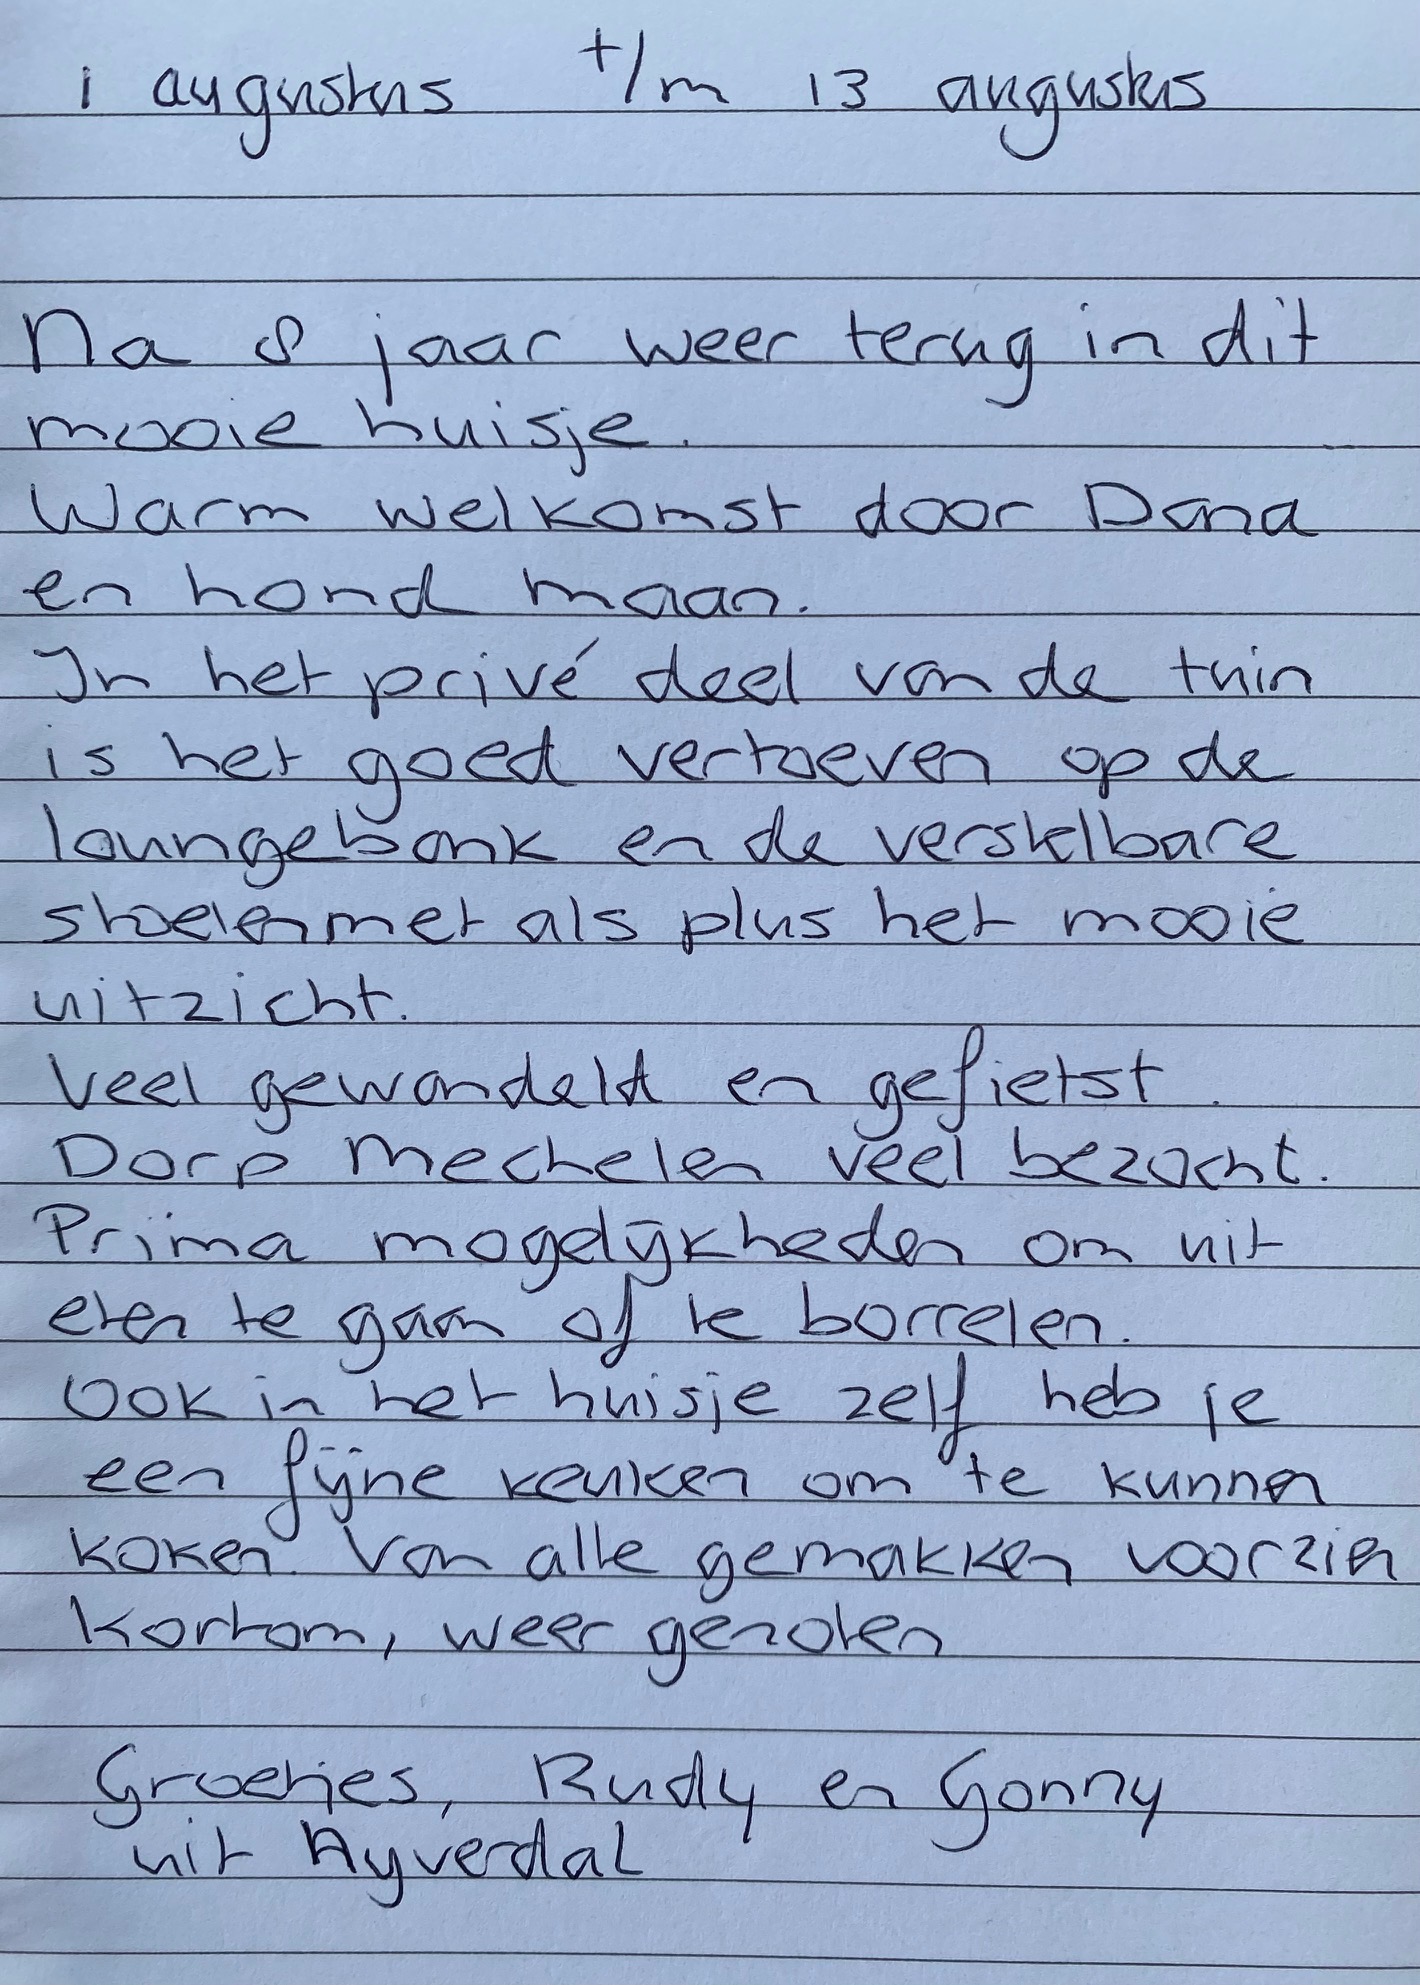 1 augustus t/m 13 augustus
Na 8 jaar weer terug in dit
mooie huisje.
Warm welkomst door Dana
en hond maan.
In het privé deel van de tuin
is het goed vertoeven op de
loungebank en de verstelbare
stoelen met als plus het mooie
uitzicht.
Veel gewandeld en gefietst.
Dorp Mechelen veel bezocht.
Prima mogelijkheden om uit
eten te gaan of te borrelen.
Ook in het huisje zelf heb je
een fijne keuken om te kunnen
koken. Van alle gemakken voorzien
Kortom, weer genoten
Groetjes, Rudy en Gonny
uit